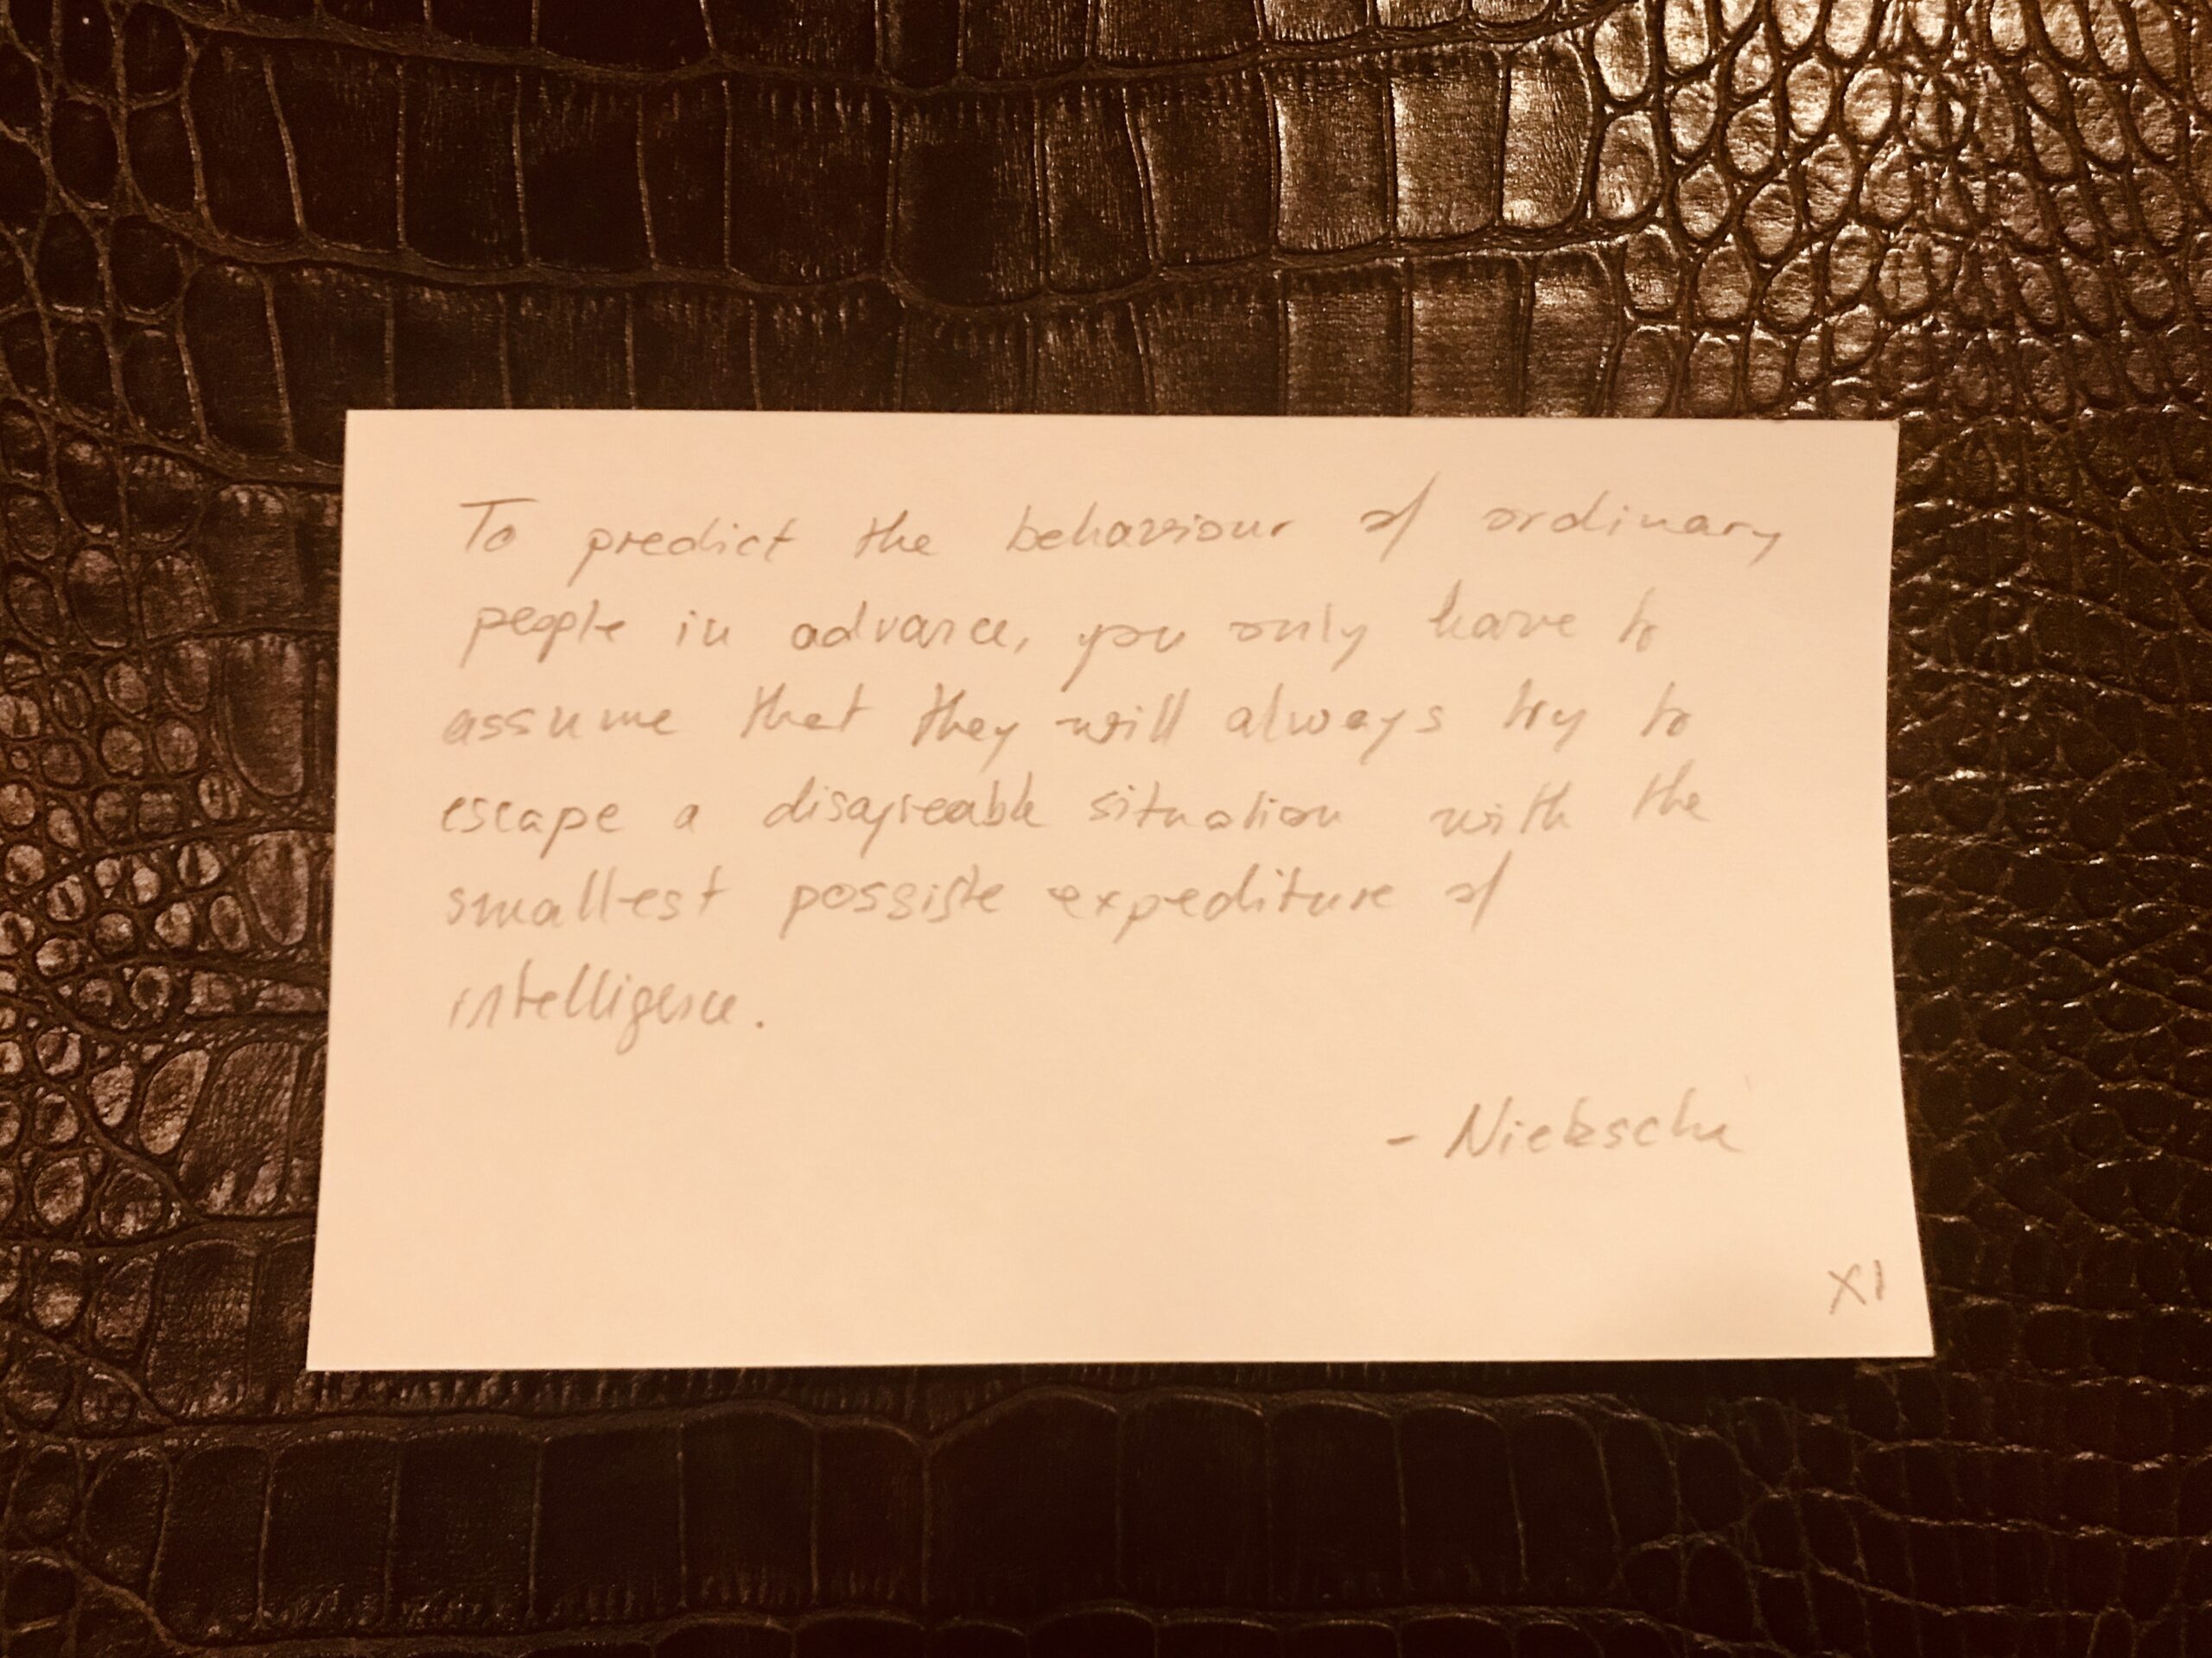 To predict the behaviour of ordinary
people in advance, you only have to
assume that they will always try to
escape a disagreable situation with the
smallest possible expediture of
intelligence.
- Nietzsche
XI